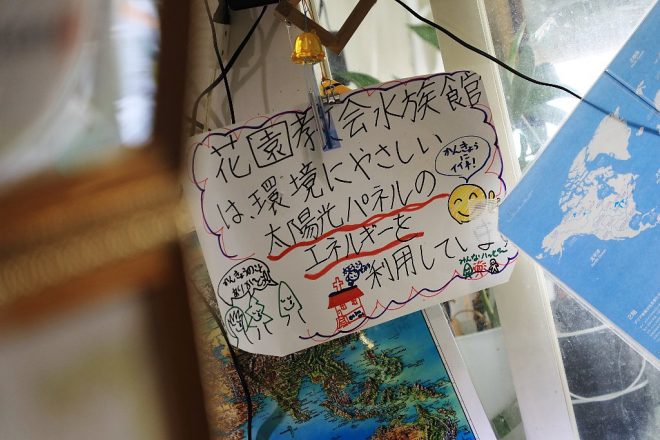 花園教会水族館
は、環境にやさしい
太陽光パネルの
エネルギーを
利用していま
かんきょう
に
イイネ!
かんきょうのこと
ありがとう!
みんなハッピー